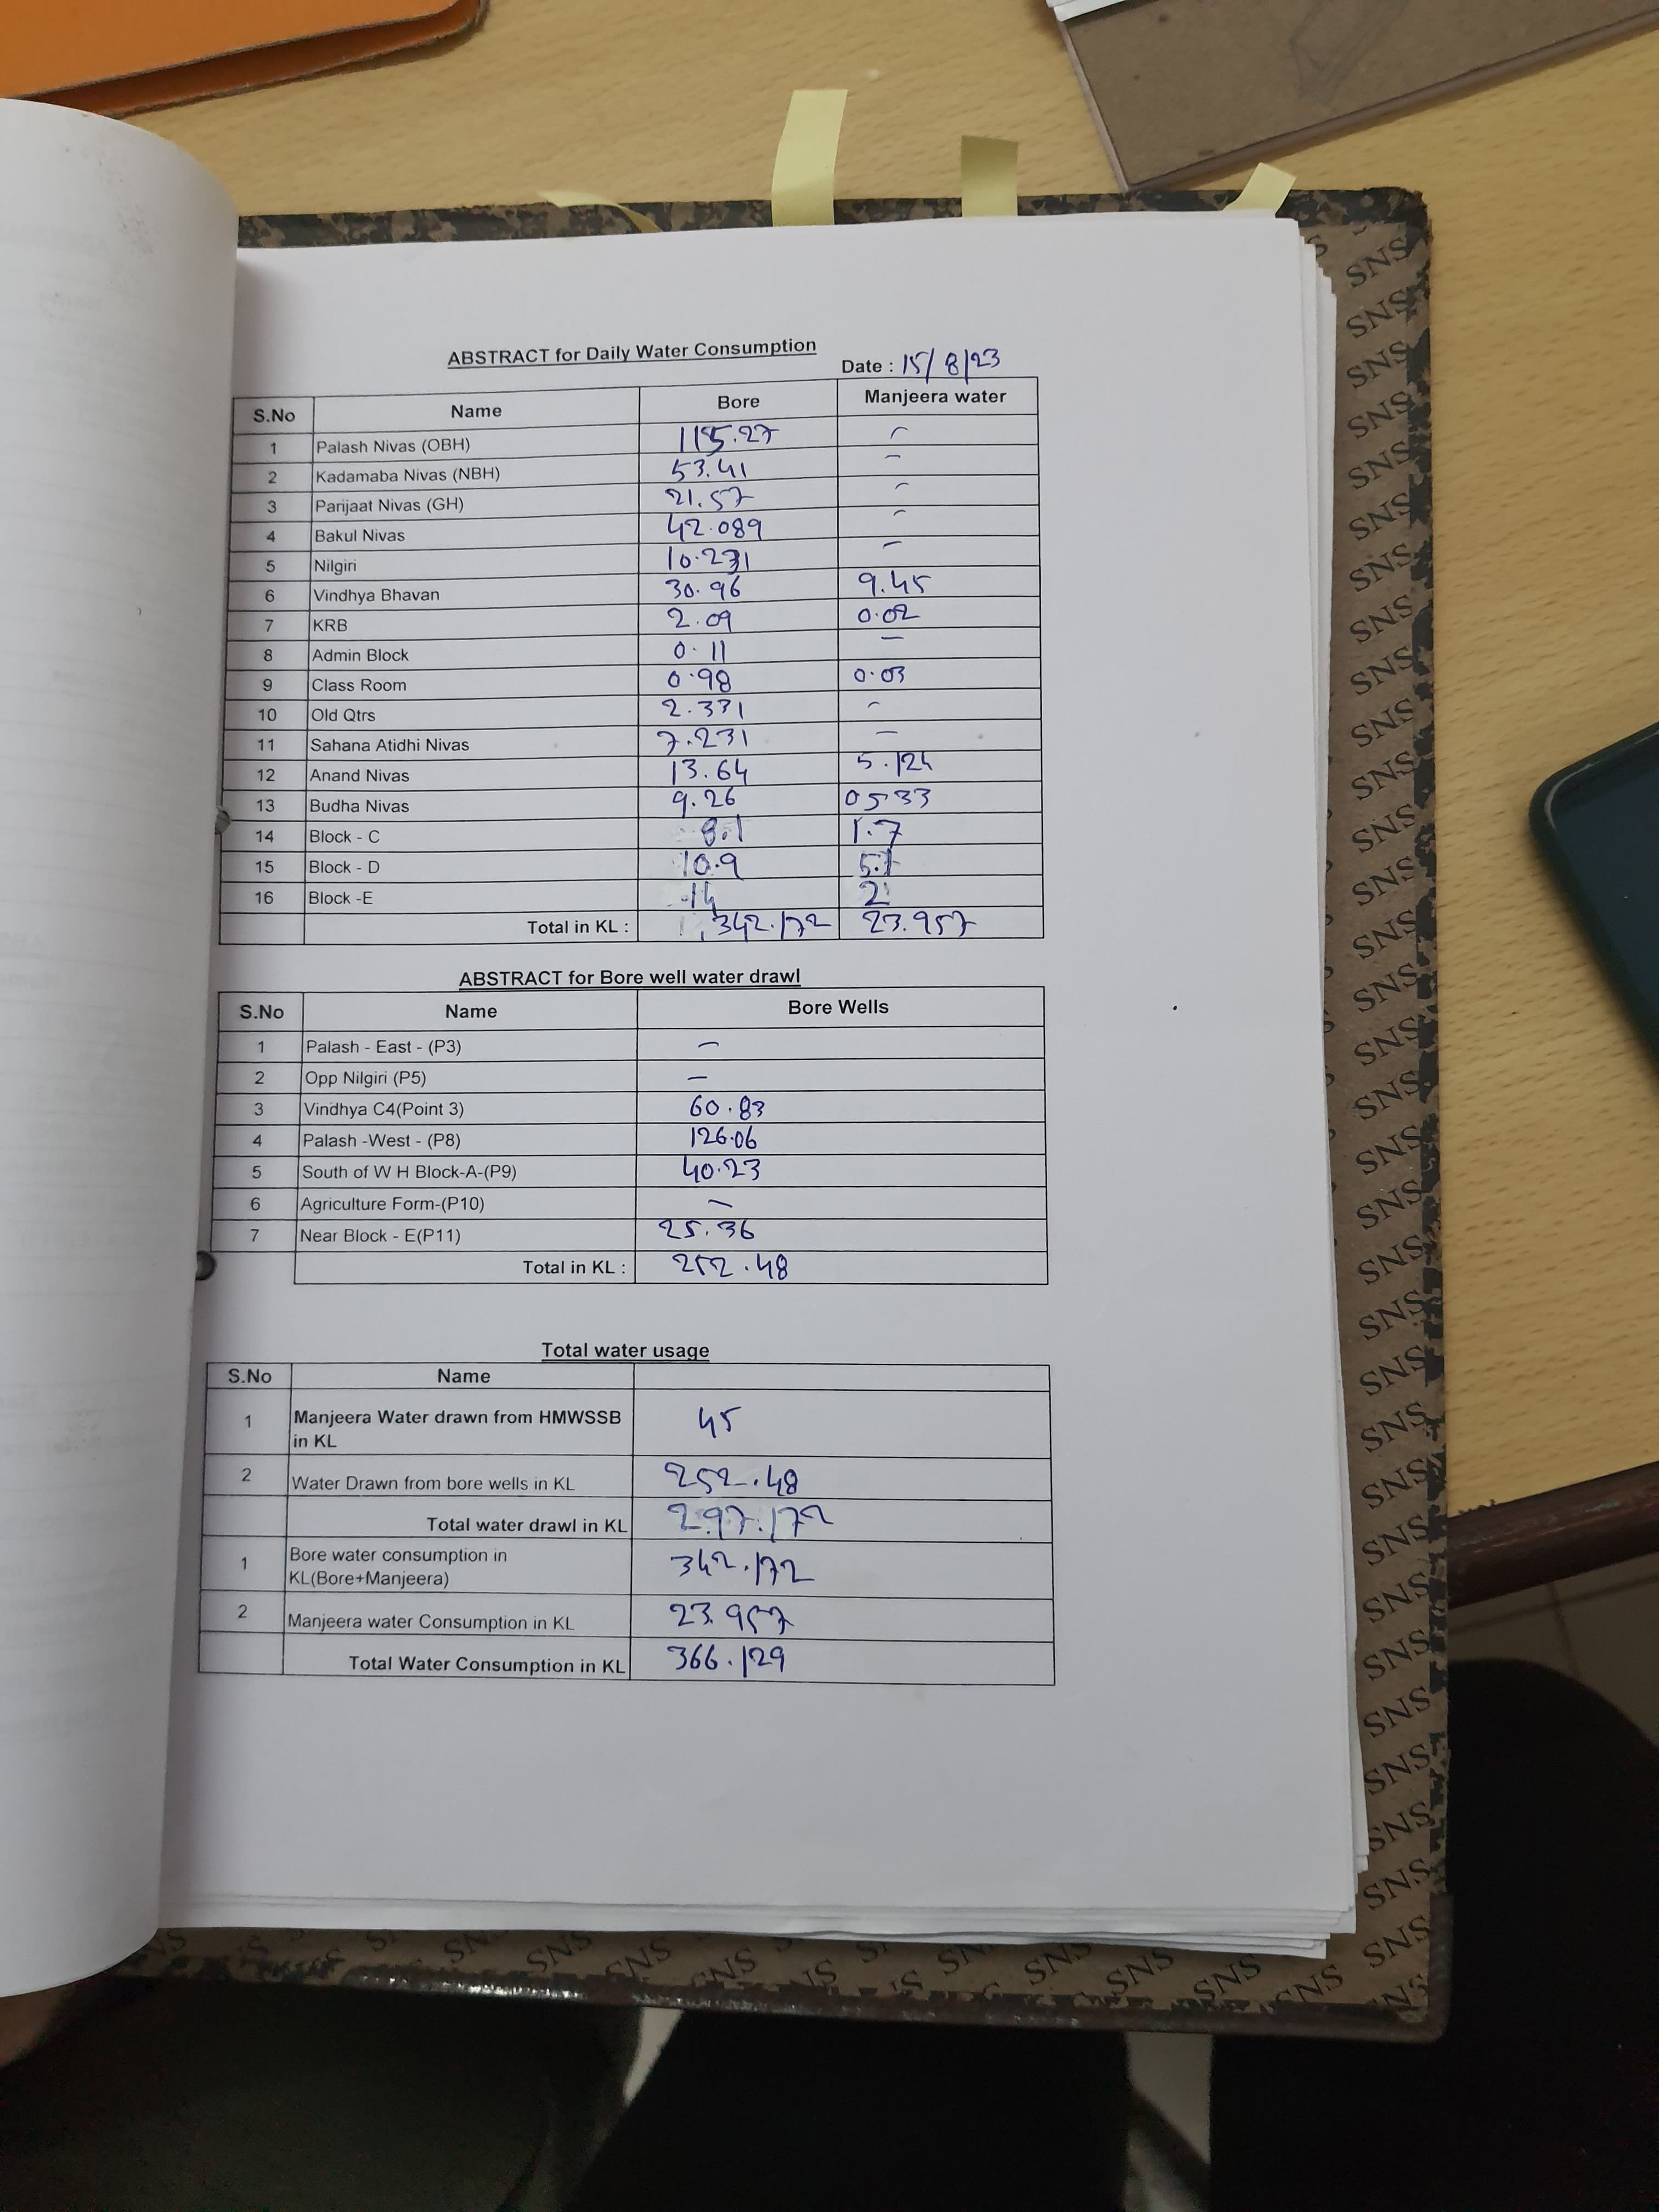 ABSTRACT for Daily Water Consumption
Date : 15/8/23
S.No Name Bore Manjeera water
1 Palash Nivas (OBH) 115.27 -
2 Kadamaba Nivas (NBH) 53.41 -
3 Parijaat Nivas (GH) 21.57 -
4 Bakul Nivas 42.089 -
5 Nilgiri 10.231 -
6 Vindhya Bhavan 30.96 9.45
7 KRB 2.09 0.02
8 Admin Block 0.11 -
9 Class Room 0.98 0.03
10 Old Qtrs 2.331 -
11 Sahana Atidhi Nivas 7.231 -
12 Anand Nivas 13.64 5.124
13 Budha Nivas 9.26 0533
14 Block - C 8.1 1.7
15 Block - D 10.9 5.1
16 Block -E 14 2
Total in KL : 342.172 23.957
ABSTRACT for Bore well water drawl
S.No Name Bore Wells
1 Palash - East - (P3) -
2 Opp Nilgiri (P5) -
3 Vindhya C4(Point 3) 60.83
4 Palash -West - (P8) 126.06
5 South of W H Block-A-(P9) 40.23
6 Agriculture Form-(P10) -
7 Near Block - E(P11) 25.36
Total in KL : 252.48
Total water usage
S.No Name
1 Manjeera Water drawn from HMWSSB
in KL 45
2 Water Drawn from bore wells in KL 252.48
Total water drawl in KL 297.172
1 Bore water consumption in
KL(Bore+Manjeera) 342.172
2 Manjeera water Consumption in KL 23.957
Total Water Consumption in KL 366.129
SNS